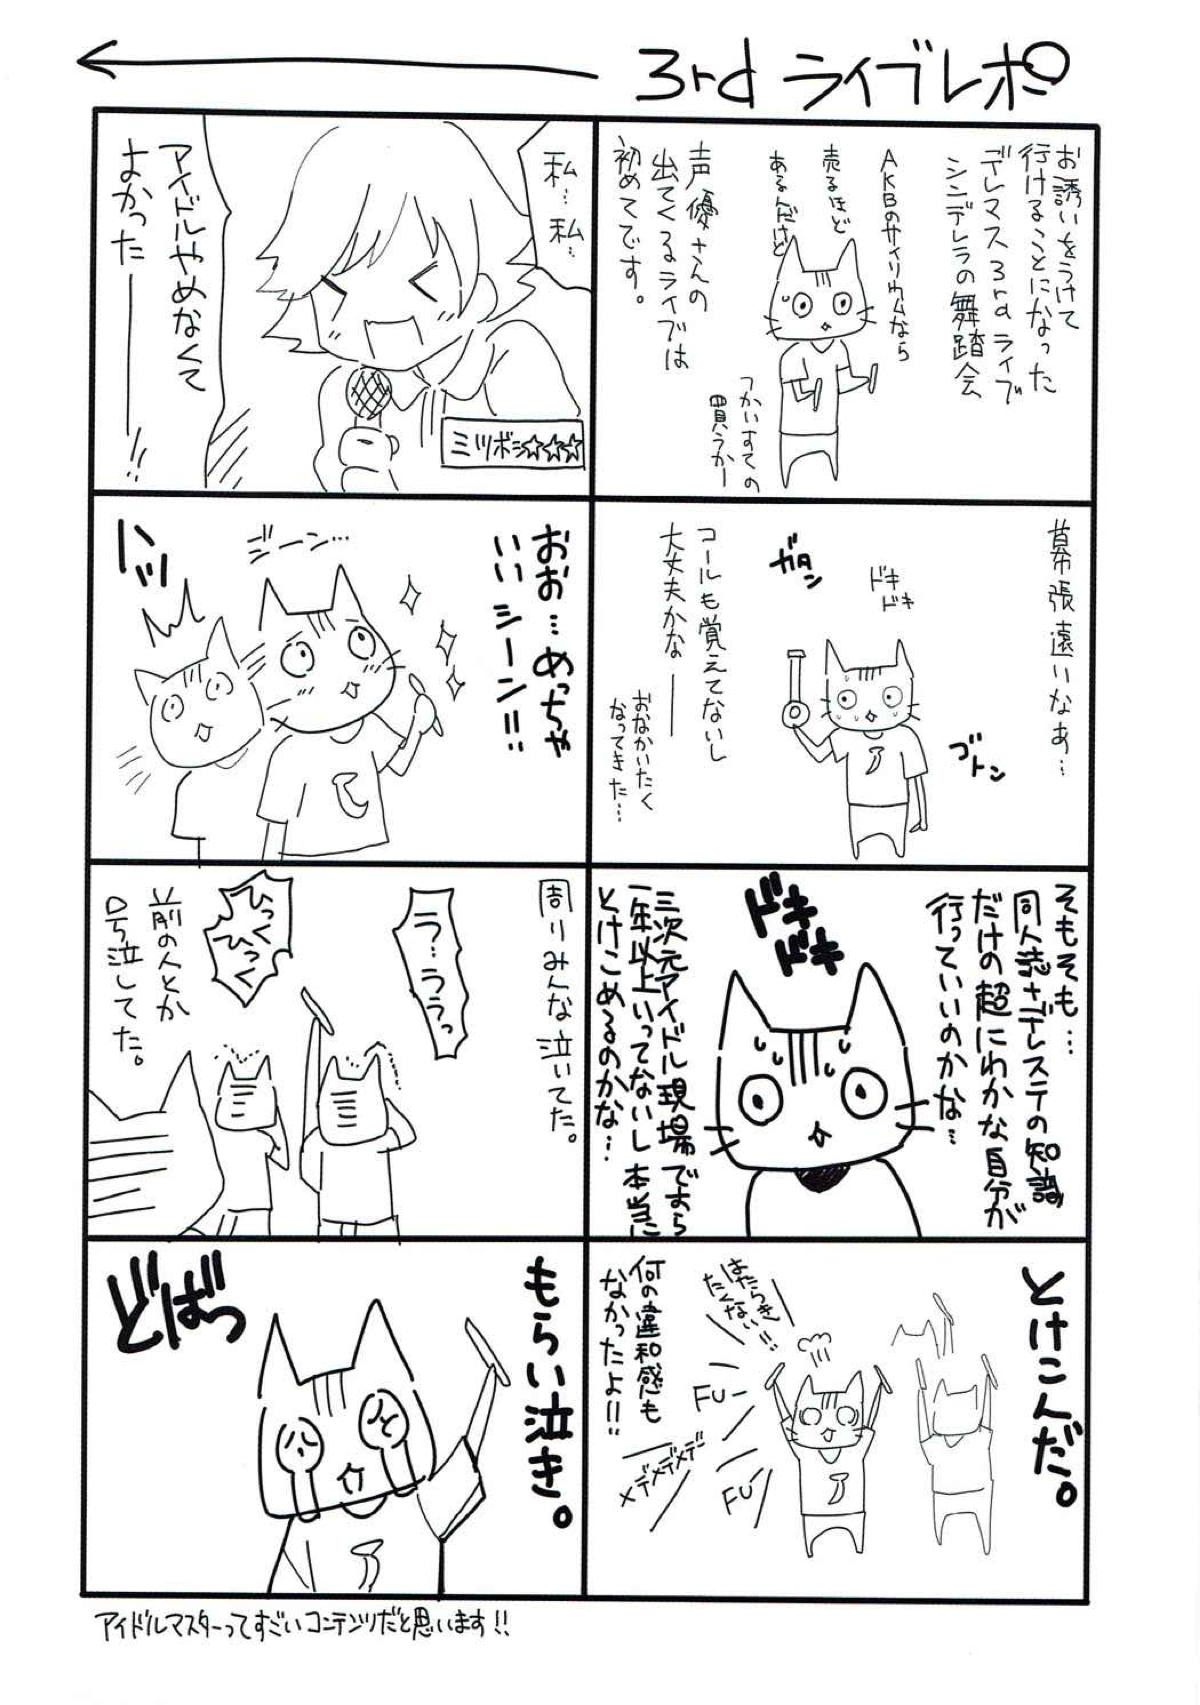 3rd ライブレポ
お誘いをうけて
行けることになった
デレマス3rdライブ
シンデレラの舞踏会
AKBのサイリウムなら
売るほど
あるんだけど
声優さんの
出てくるライブは
初めてです。
つかいすての
買うかー
幕張遠いなぁ…
ドキ
ドキ
ゴトン
ガタン
コールも覚えてないし
大丈夫かな――
おなかいたく
なってきた…
そもそも…
同人誌+デレステの知識
だけの超にわかな自分が
行っていいのかな…
ドキ
ドキ
三次元アイドル現場ですら
一年以上いってないし本当に
とけこめるのかな…
とけこんだ。
はたらき
たくない!!
FU-
FU-
メデメデメデー
何の違和感も
なかったよ!!
私…私…
アイドルやめなくて
よかったーーー!!
ミツボシ☆☆★
おお…めっちゃ
いいシーン!!
ジーン…
ハッ
周りみんな泣いてた。
ラ…ララっ
ひっく
ひっく
前の人とか
号泣してた。
もらい泣き。
どばっ
アイドルマスターってすごいコンテンツだと思います!!